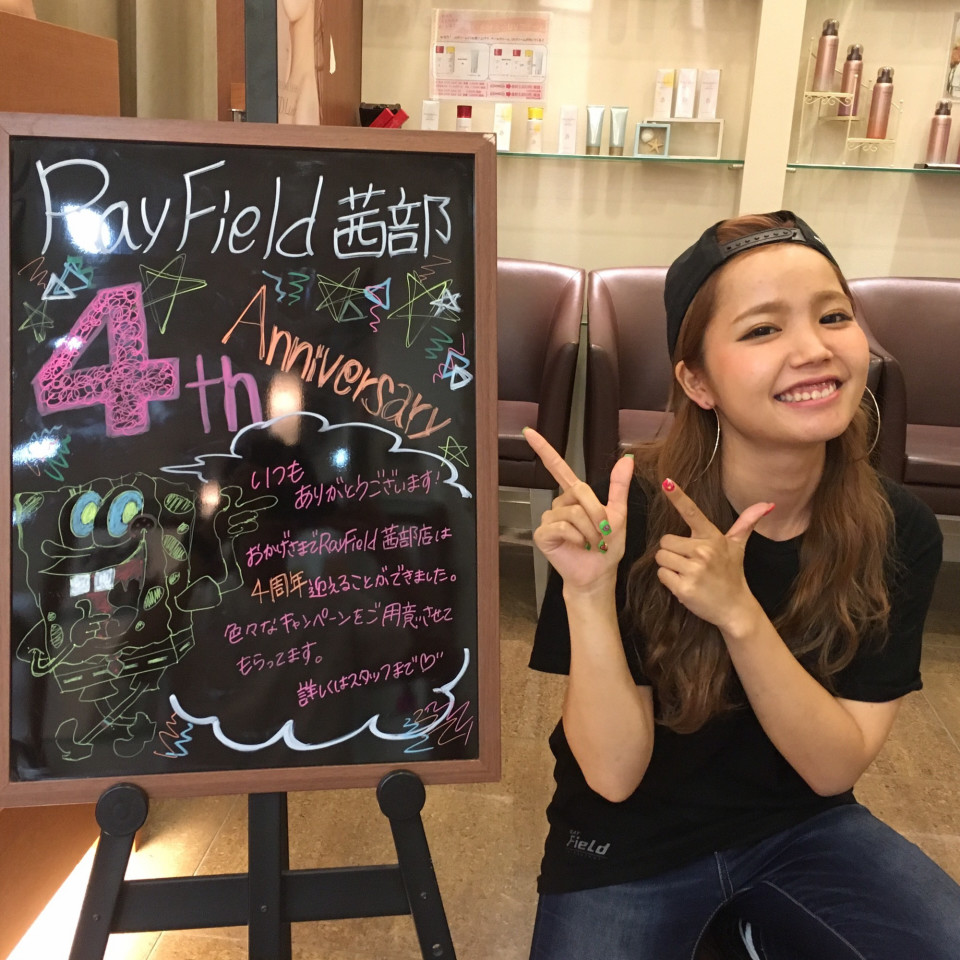 RayField 茜部
4th
Anniversary
いつも
ありがとうございます!
おかげさまでRayField 茜部店は
4周年迎えることができました。
色々なキャンペーンをご用意させて
もらってます。
詳しくはスタッフまで♡
Field